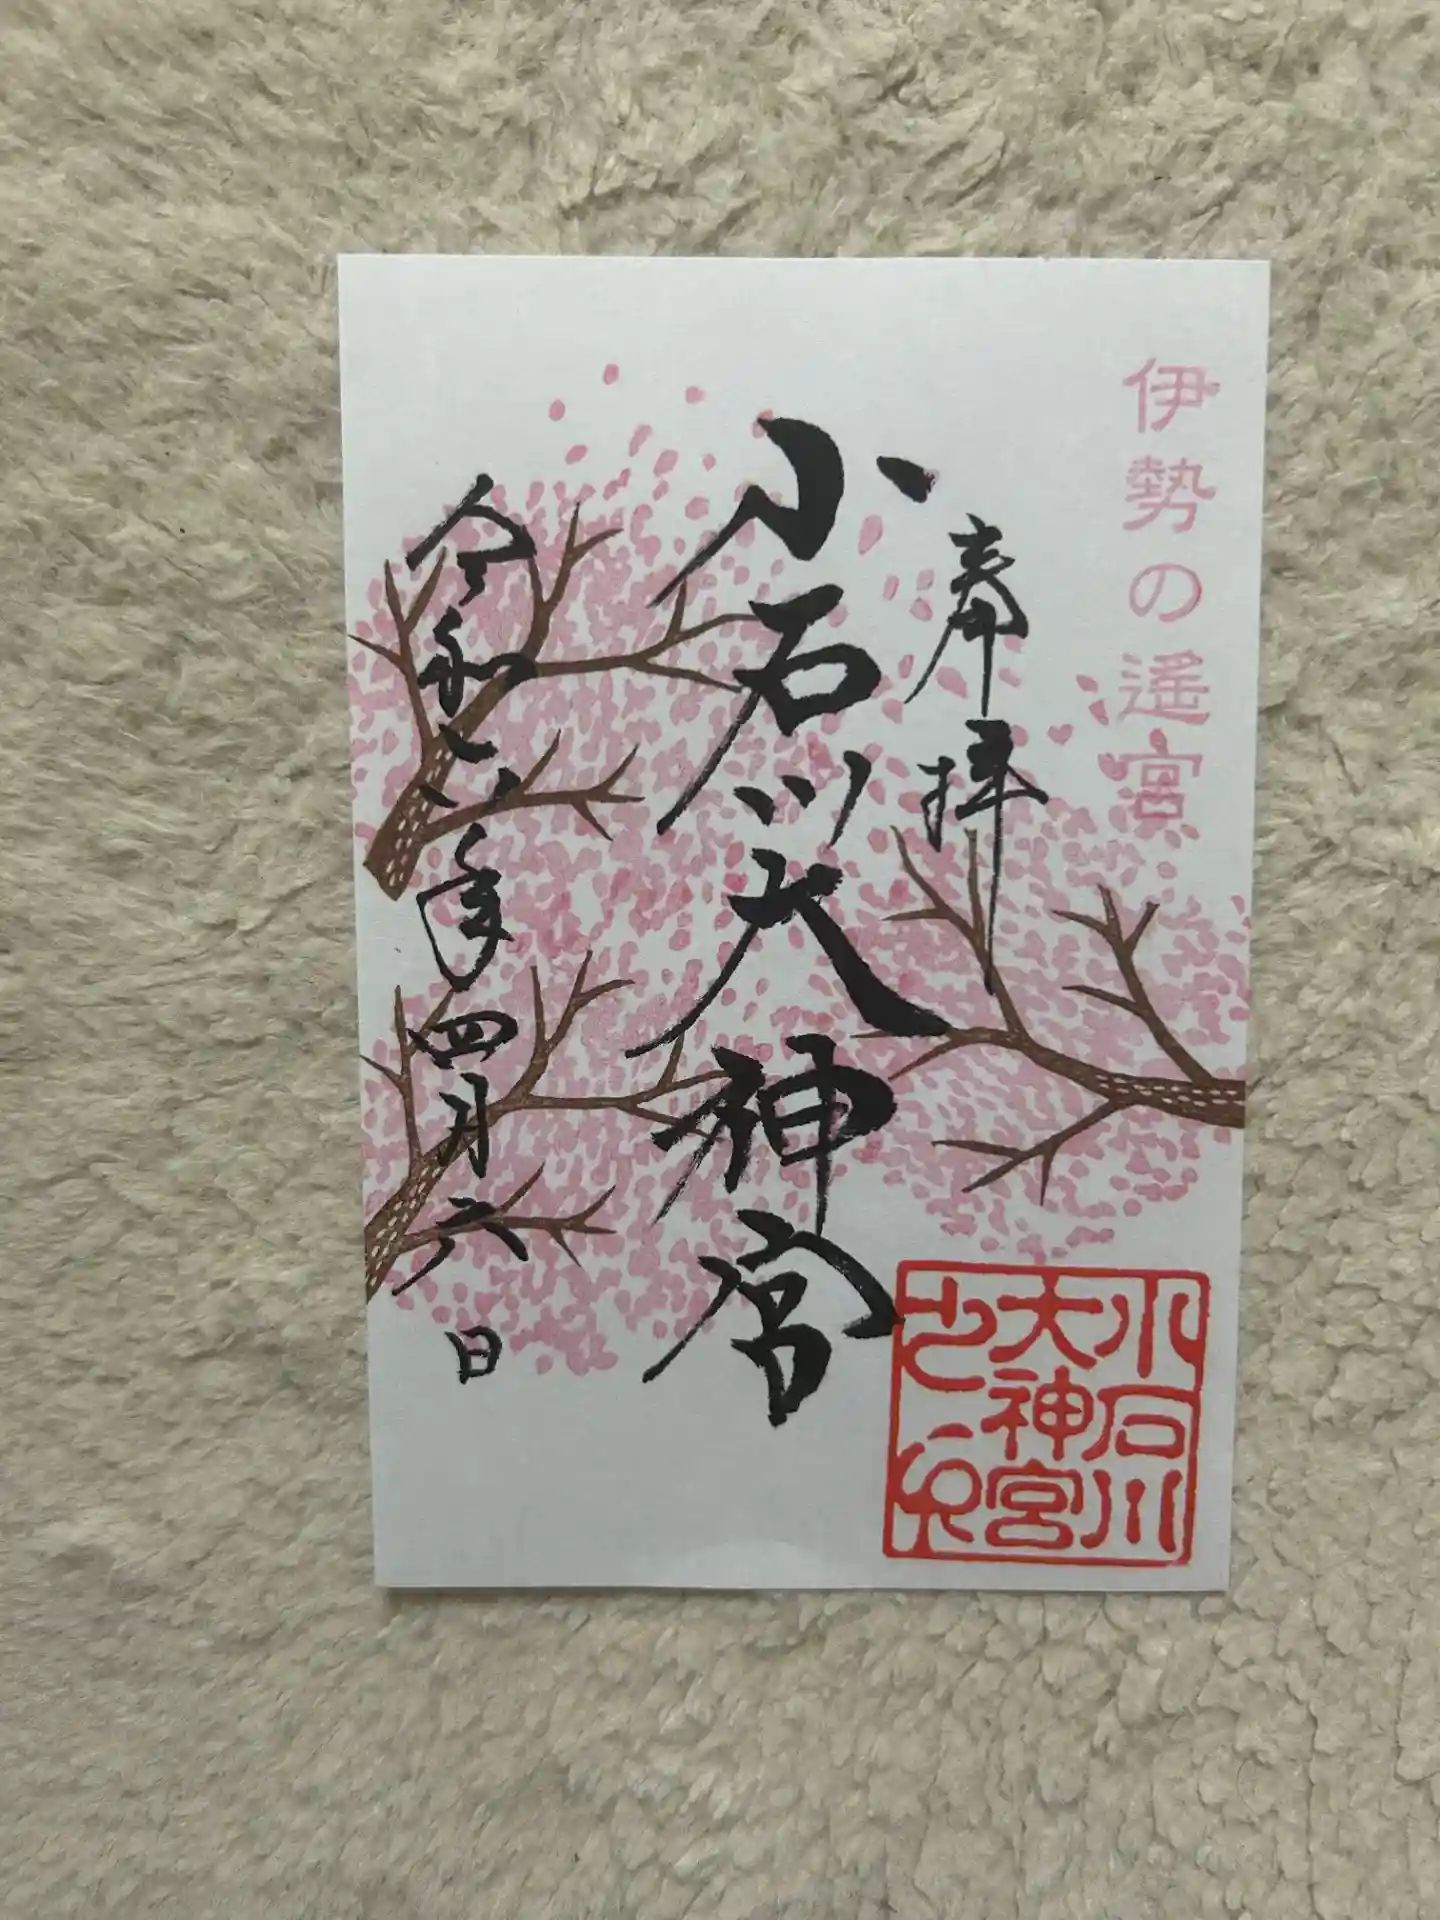 伊勢の遥宮
奉拝
小石川大神宮
令和六年四月六日
小石川
大神宮
之印